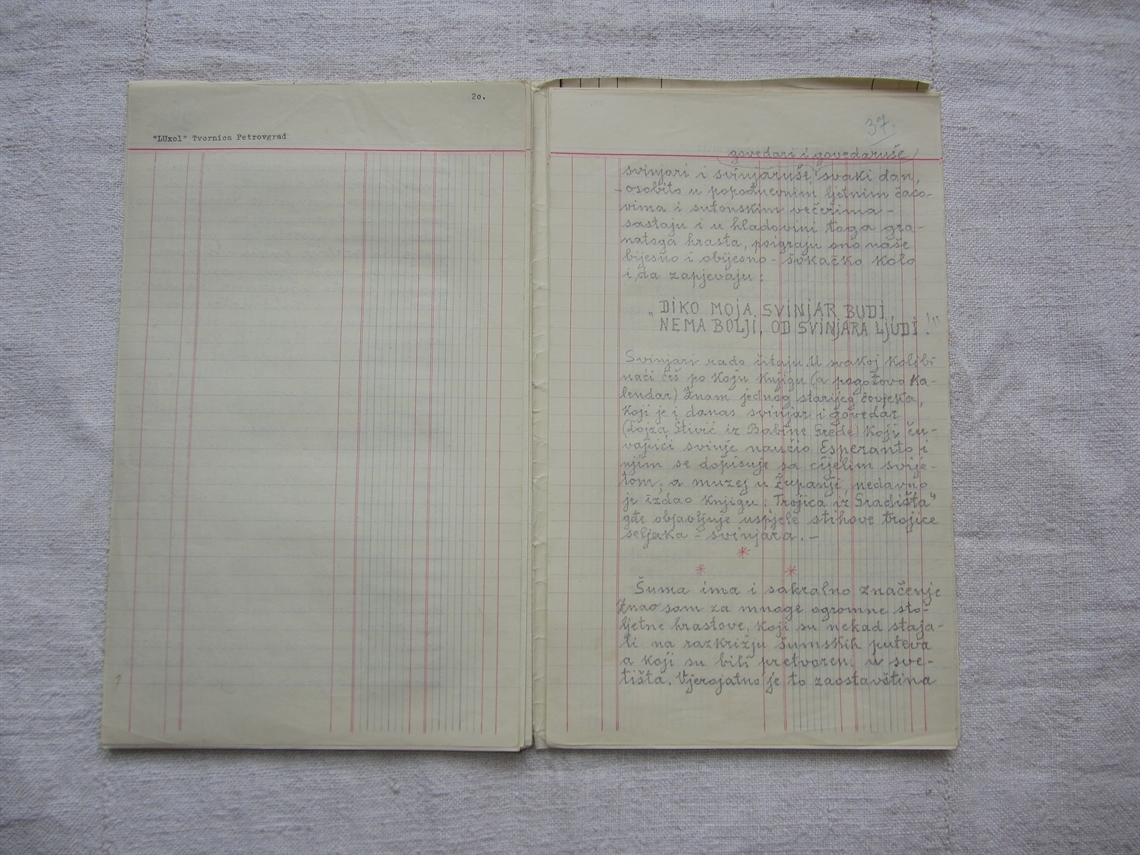 2o.
"LUxol" Tvornica Petrovgrad
37.
govedari i govedaruše
svinjari i svinjaruše svaki dan,
osobito u popodnevnim ljetnim časo-
vima i sutonskim večerima -
sastaju i u hladovini toga gra-
natoga hrasta, poigraju ono naše
bijesno i obijesno - šokačko kolo
i da zapjevaju:
„DIKO MOJA, SVINJAR BUDI,
NEMA BOLJI, OD SVINJARA LJUDI!"
Svinjari rado čitaju. U svakoj kolibi
naći ćeš po koju knjigu (a pogotovo ka-
lendar) Znam jednog starijeg čovjeka,
koji je i danas svinjar i govedar
(Lojza Štivić iz Babine Grede) koji ču-
vajući svinje naučio Esperanto i
njim se dopisuje sa cijelim svije-
tom, a muzej u Županji nedavno
je izdao knjigu: Trojica iz Gradišta"
gdе objavljuje uspjele stihove trojice
seljaka - svinjara. -
*
* *
Šuma ima i sakralno značenje
Znao sam za mnoge ogromne sto-
ljetne hrastove, koji su nekad staja-
li na razkrižju šumskih puteva
a koji su bili pretvoreni u sve-
tišta. Vjerojatno je to zaostavština